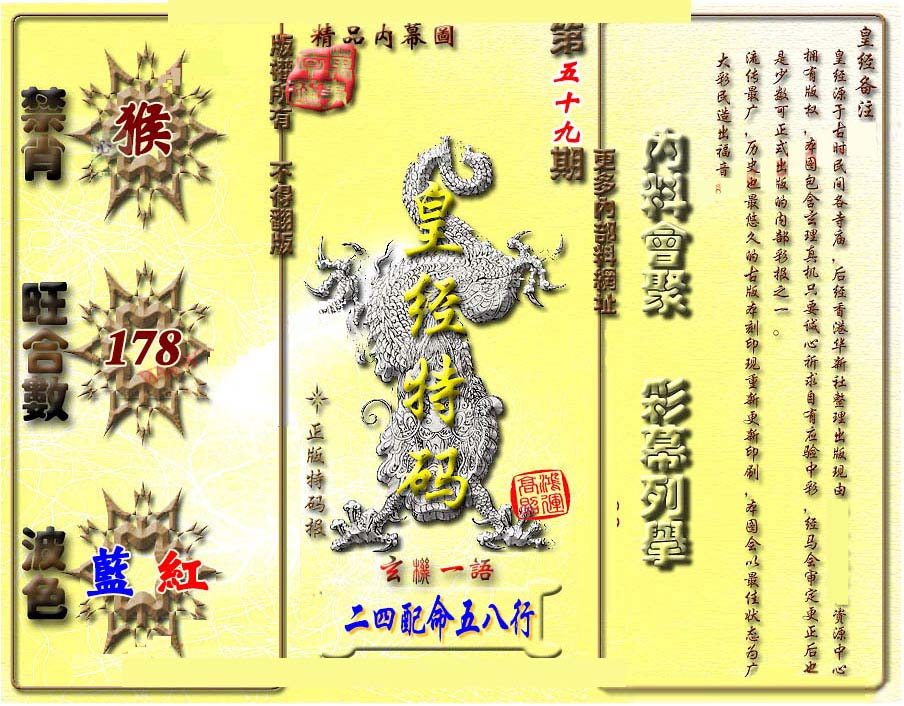 精品内幕圖
第五十九期
版權所有 不得翻版
更多内部料網址
禁肖
猴
旺合數
178
波色
藍 紅
皇经特码
正版特码报
鴻運高照
玄機一語
二四配命五八行
内料會聚
彩幕列举
皇经备注
皇经源于古时民间各寺庙,后经香港华新社整理出版现由 资源中心
拥有版权,本图包含玄理真机只要诚心祈求自有应验中彩,经马会审定更正后也
是少数可正式出版的内部彩报之一。
流传最广,历史也最悠久的古版本刻印现重新更新印刷,本图会以最佳状态为广
大彩民造出福音。